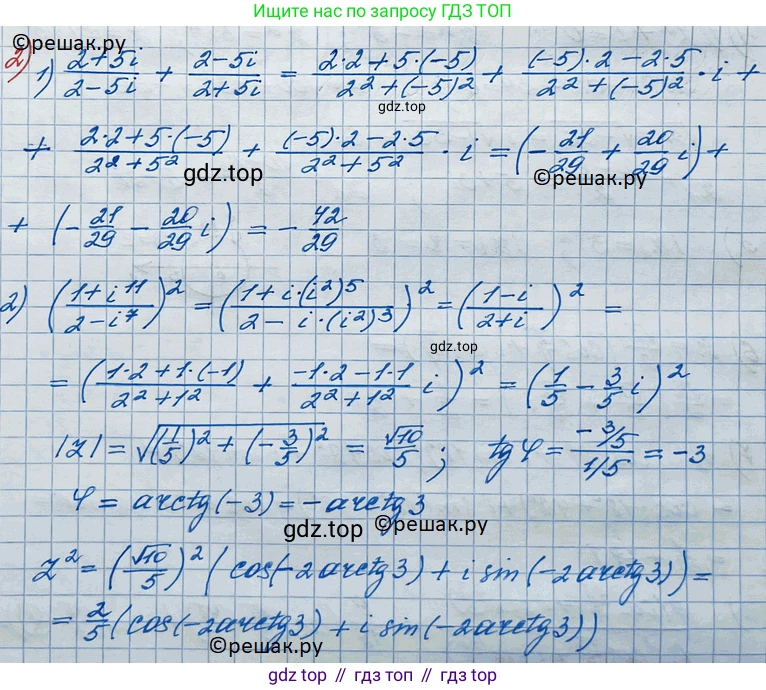 Ищите нас по запросу ГДЗ ТОП
©решак.ру
2)
1) (2+5i)/(2-5i) + (2-5i)/(2+5i) = (2·2+5·(-5))/(2²+(-5)²) + ((-5)·2-2·5)/(2²+(-5)²) · i +
gdz.top
+ (2·2+5·(-5))/(2²+5²) + ((-5)·2-2·5)/(2²+5²) · i = (-21/29 + 20/29 i) +
gdz.top ©решак.ру
+ (-21/29 - 20/29 i) = -42/29
2) ((1+i¹¹)/(2-i⁷))² = ((1+i·(i²)⁵)/(2-i·(i²)³))² = ((1-i)/(2+i))² =
gdz.top
= ((1·2+1·(-1))/(2²+1²) + (-1·2-1·1)/(2²+1²) i)² = (1/5 - 3/5 i)²
|z| = √((1/5)²+(-3/5)²) = √10/5 ; tgφ = (-3/5)/(1/5) = -3
φ = arctg(-3) = -arctg3
gdz.top ©решак.ру
z² = (√10/5)² (cos(-2arctg3) + i sin(-2arctg3)) =
= 2/5 (cos(-2arctg3) + i sin(-2arctg3))
©решак.ру
gdz.top // gdz.top // gdz.top